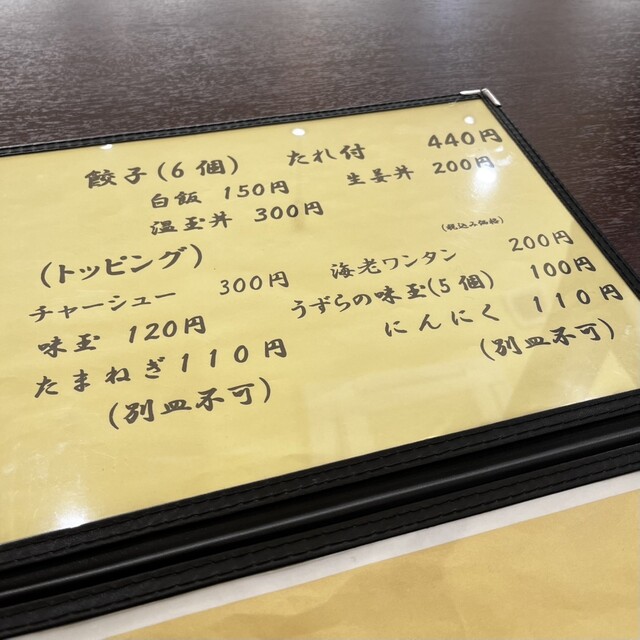 餃子(6個) たれ付 440円
白飯 150円 生姜丼 200円
温玉丼 300円
(税込み価格)
(トッピング)
チャーシュー 300円 海老ワンタン 200円
味玉 120円 うずらの味玉(5個) 100円
たまねぎ110円 にんにく 110円
(別皿不可) (別皿不可)